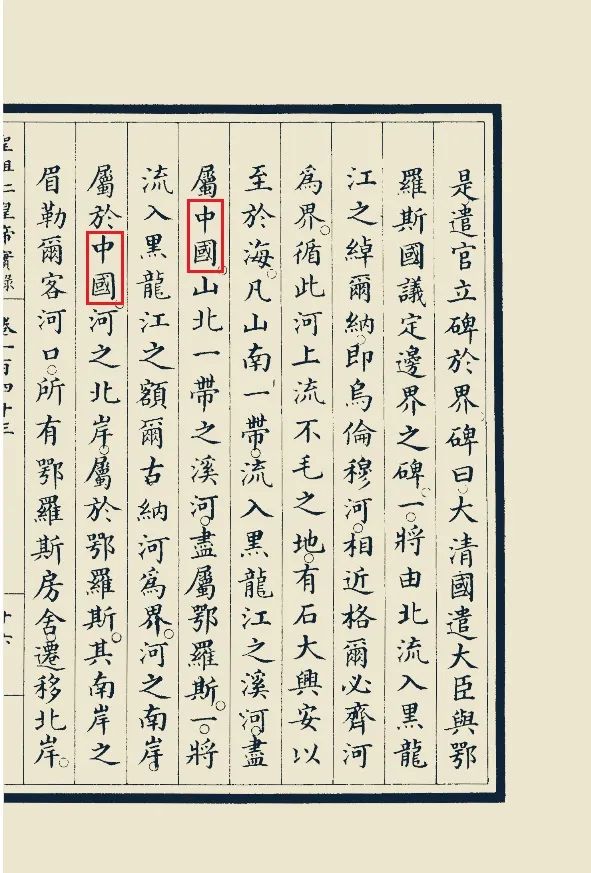 是遣官立碑於界碑曰。大清國遣大臣與鄂
羅斯國議定邊界之碑。一。將由北流入黑龍
江之綽爾納。即烏倫穆河。相近格爾必齊河
爲界。循此河上流不毛之地。有石大興安以
至於海。凡山南一帶。流入黑龍江之溪河。盡
屬中國。山北一帶之溪河。盡屬鄂羅斯。一。將
流入黑龍江之額爾古納河爲界。河之南岸。
屬於中國。河之北岸。屬於鄂羅斯。其南岸之
眉勒爾客河口。所有鄂羅斯房舍。遷移北岸。
皇帝實錄
卷一百四十三
十六